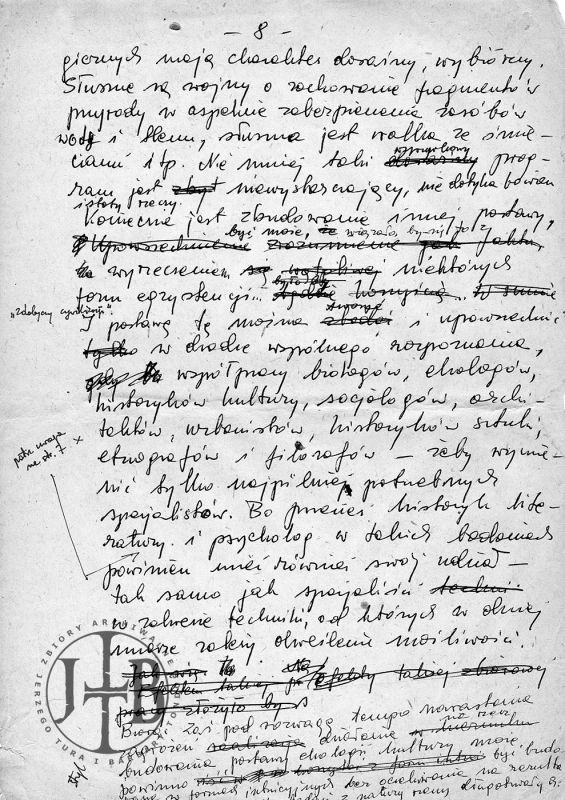 – 8 –
gicznych mają charakter doraźny, wybiórczy.
Słuszne są wojny o zachowanie fragmentów
przyrody w aspekcie zabezpieczenia zasobów
wody i tlenu, słuszna jest walka ze śmie-
ciami itp. Nie mniej taki wyrywkowy prog-
ram jest zbyt niewystarczający, nie dotyka bowiem
istoty rzeczy.
Konieczne jest zbudowanie innej postawy,
być może, że wiązało by się to z
Upowszechnienie zrozumienie faktu,
wyrzeczeniem się niektórych
form egzystencji...
"zdobyczy cywilizacji".
I postawę tę można stworzyć i upowszechnić
tylko w drodze wspólnego rozpoznania,
współpracy biologów, ekologów,
historyków kultury, socjologów, archi-
tektów, urbanistów, historyków sztuki,
etnografów i filozofów – żeby wymie-
nić tylko najpilniej potrzebnych
patrz uwaga
na str. 7 x
specjalistów. Bo przecież historyk lite-
ratury i psycholog w takich badaniach
powinien mieć również swój udział –
tak samo jak specjaliści techni-
w zakresie techniki, od których w dużej
mierze zależy określenie możliwości.
Efektem takiej efekty takiej zbiorowej
złożyło by się
Biorąc zaś pod rozwagę tempo narastania
zagrożeń działanie na rzecz
budowania postawy ekologii kultury może
powinno być budo-
wane w formach
JERZEGO TURA I BARBARY
ZBIORY ARCHIWALNE
JTB